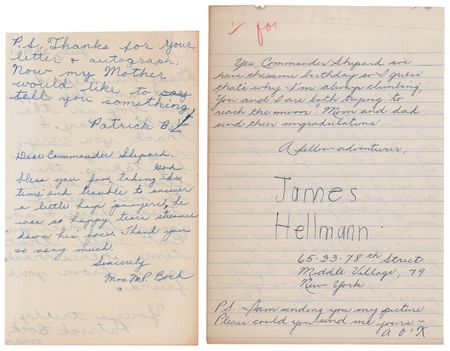 P.S. Thanks for your
letter & autograph.
Now my Mother
would like to say
tell you something
Patrick B.
Dear Commander Shepard.
God
bless you for taking the
time and trouble to answer
a little boys prayers, he
was so happy tears streamed
down his face. Thank you
so very much.
Sincerely
Mrs. M.P. Bock
for
Yes Commander Shepard we
have the same birthday so I guess
that's why I'm always climbing,
You and I are both trying to
reach the moon. Mom and dad
send their congradulations.
A fellow adventurer,
James
Hellmann
65-33-78th Street
Middle Village, 79
New York
P.S. I am sending you my picture
Please could you send me yours -
a O.K.